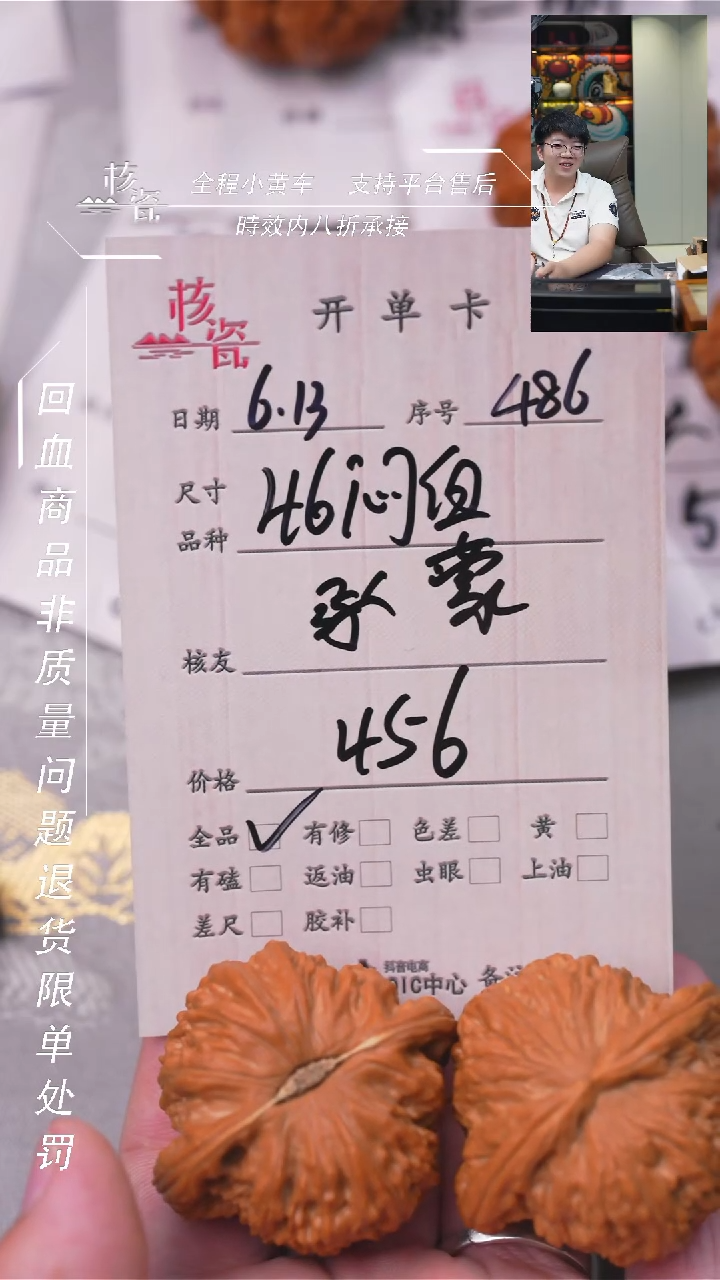 核瓷
全程小黄车 支持平台售后
時效内八折承接
回血商品非质量问题退货限单处罚
核瓷
开单卡
日期 6.13 序号 486
尺寸
品种 46闷
核友
价格 456
全品 ✓ 有修 色差 黄
有磕 返油 虫眼 上油
差尺 胶补
抖音电商
QIC中心
5